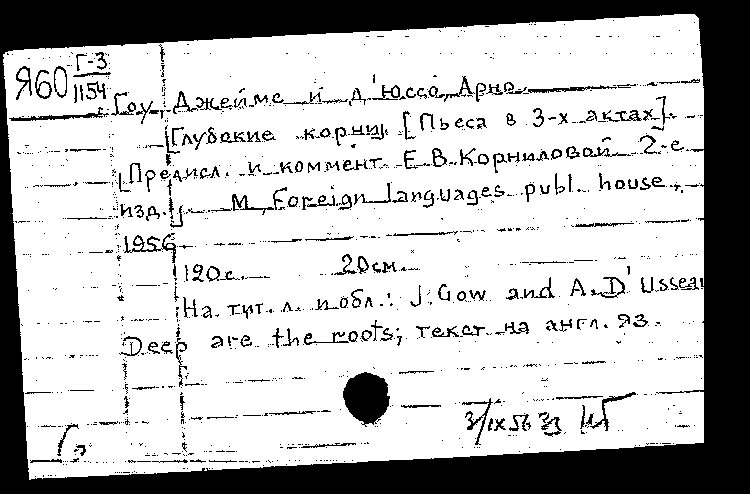 Я60 Г-3
1154
Гоу, Джеймс и д'Юссо, Арно.
[Глубокие корни. [Пьеса в 3-х актах].
[Предисл. и коммент. Е.В.Корниловой. 2-е
изд.]. М., Foreign languages publ. house,
1956.
120с. 20см.
На тит. л. и обл.: J. Gow and A. D'Usseau
Deep are the roots; текст на англ. яз.
3/IX 56